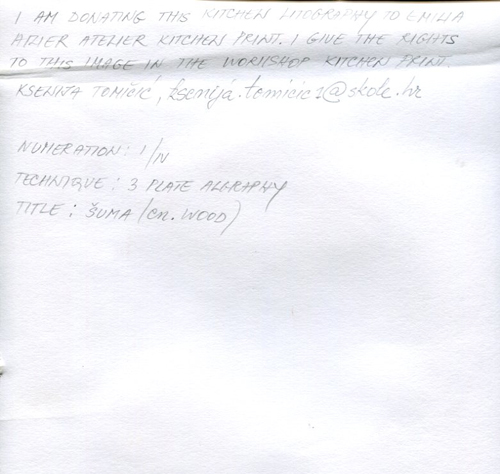 I AM DONATING THIS KITCHEN LITOGRAPHY TO EMILIA
AZIER ATELIER KITCHEN PRINT. I GIVE THE RIGHTS
TO THIS IMAGE IN THE WORKSHOP KITCHEN PRINT.
KSENIJA TOMIČIĆ, ksenija.tomicic1@skole.hr
NUMERATION: 1/N
TECHNIQUE: 3 PLATE ALGRAPHY
TITLE: ŠUMA (en. WOOD)